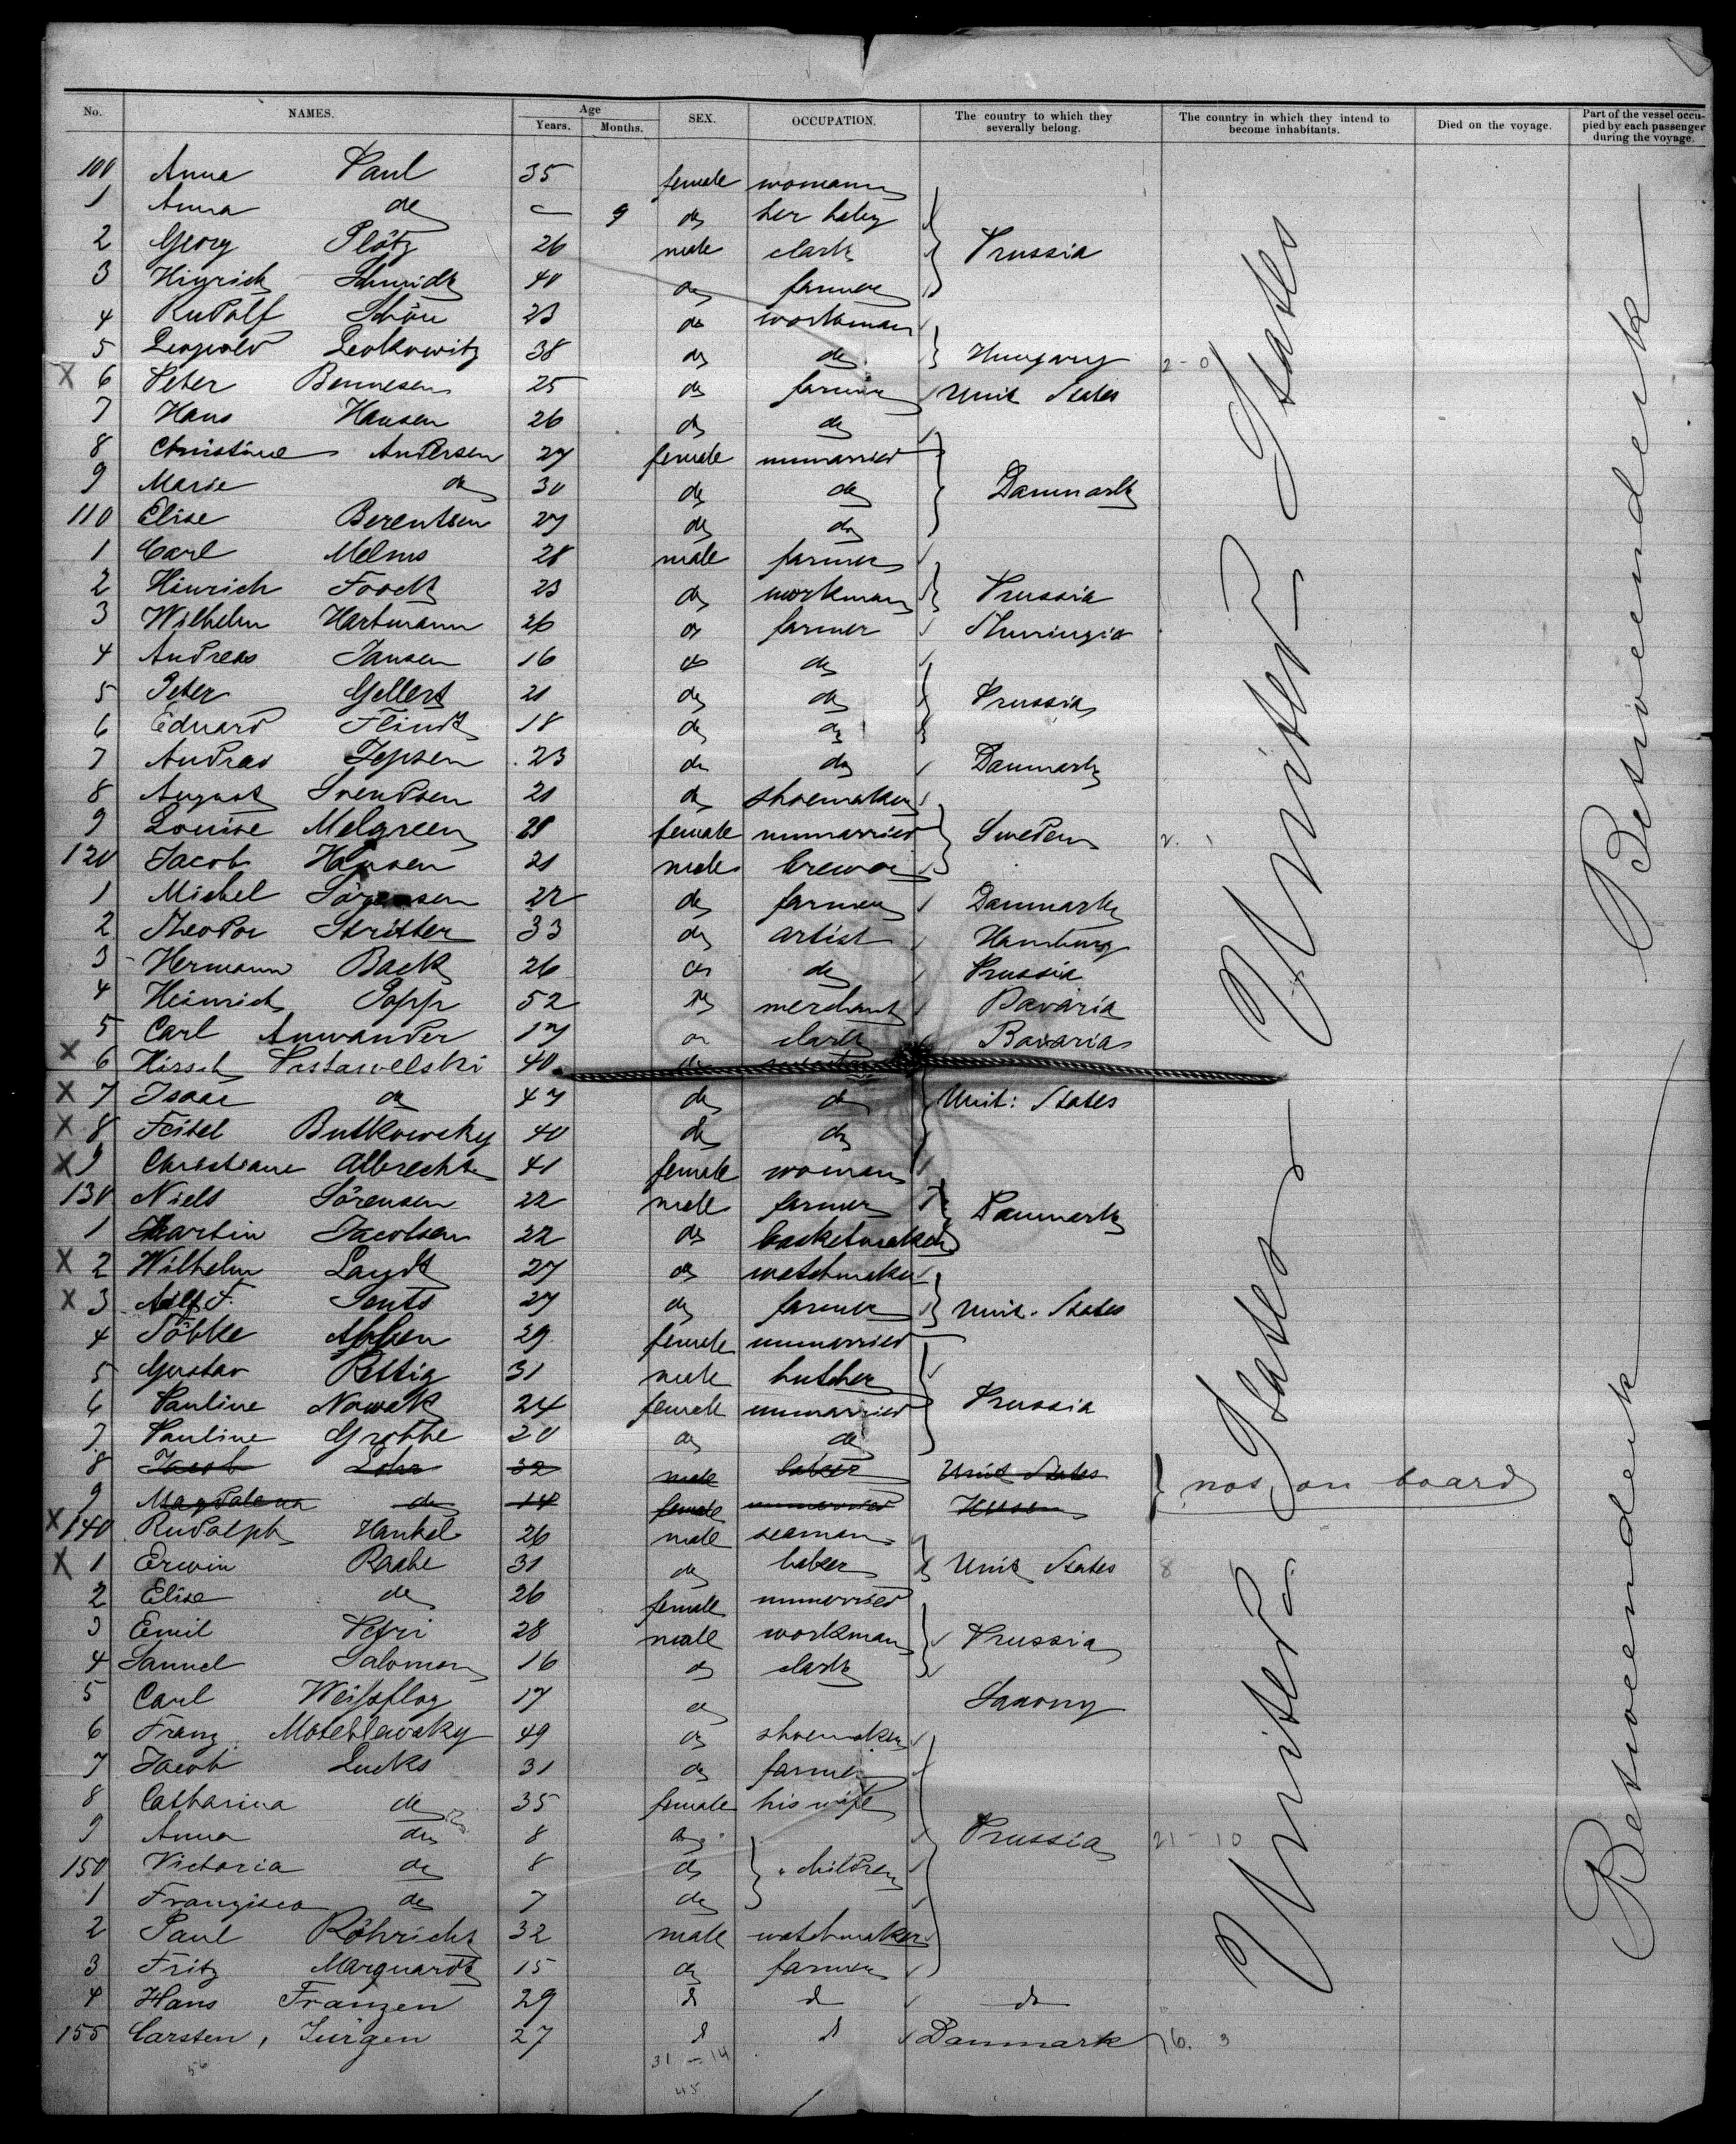 No. NAMES. Age Years. Months. SEX. OCCUPATION. The country to which they severally belong. The country in which they intend to become inhabitants. Died on the voyage. Part of the vessel occupied by each passenger during the voyage.
100 Anna Paul 35 female womann
1 Anna do — 9 do her baby
2 Georg Plötz 26 male clark Prussia
3 Hinrich Schmidt 40 do farmer
4 Rudolf Schön 23 do workman
5 Leopold 38 do do Hungary 2-0
X 6 Peter Bennesen 25 do farmer Unit States
7 Hans Hansen 26 do do
8 Christine Andersen 27 female unmarried
9 Marie do 30 do do Danmark
110 Elise Berentsen 27 do do
1 Carl Melms 28 male farmer
2 Hinrich Foock 23 do workman Prussia
3 Wilhelm Hartmann 26 do farmer Thuringia
4 Andreas Jansen 16 do do
5 Peter Gellert 21 do do Prussia
6 Eduard Flindt 18 do do
7 Andreas Jepsen 23 do do Danmark
8 August Svendsen 21 do shoemaker
9 Louise Melgreen 28 female unmarried Sweden 2. 1
120 Jacob Hansen 21 male brewer
1 Michel Sörensen 22 do farmer Danmark
2 Theodor Stritter 33 do artist Hamburg
3 Hermann Back 26 do do Prussia
4 Heinrich Popp 52 do merchant Bavaria
5 Carl Anwander 17 do clark Bavaria
X 6 Hirsch Postawelski 40 do
X 7 Isaac do 47 do do Unit: States
X 8 Feitel Butkowsky 40 do do
X 9 Christiane Albrecht 41 female woman
130 Niels Sörensen 22 male farmer Danmark
1 Martin Jacobsen 22 do basketmaker
X 2 Wilhelm Landt 27 do watchmaker
X 3 F. 27 do farmer Unit. States
4 29 female unmarried
5 Gustav Rettig 31 male butcher
6 Pauline Nowak 24 female unmarried Prussia
7 Pauline Grothe 20 do do
8 Jacob 32 male baker Unit States not on board
9 Magdalena do 14 female unmarried Hessen
X 140 Rudolph Hankel 26 male seaman
X 1 Erwin Raabe 31 do baker Unit States 8
2 Elise do 26 female unmarried
3 Emil Petri 28 male workman Prussia
4 Samuel Salomon 16 do clark
5 Carl Weißflog 17 do Saxony
6 Franz 49 do shoemaker
7 Jacob Lucks 31 do farmer
8 Catharina do 35 female his wife
9 Anna do 8 do Prussia 21-10
150 Victoria do 8 do children
1 Franzisca do 7 do
2 Paul Röhricht 32 male watchmaker
3 Fritz Marquardt 15 do farmer
4 Hans Franzen 29 d d do
155 Carsten, Jürgen 27 d d Danmark 16. 3
56 31 - 14
45
United States
United States
Betweendenk
Betweendenk